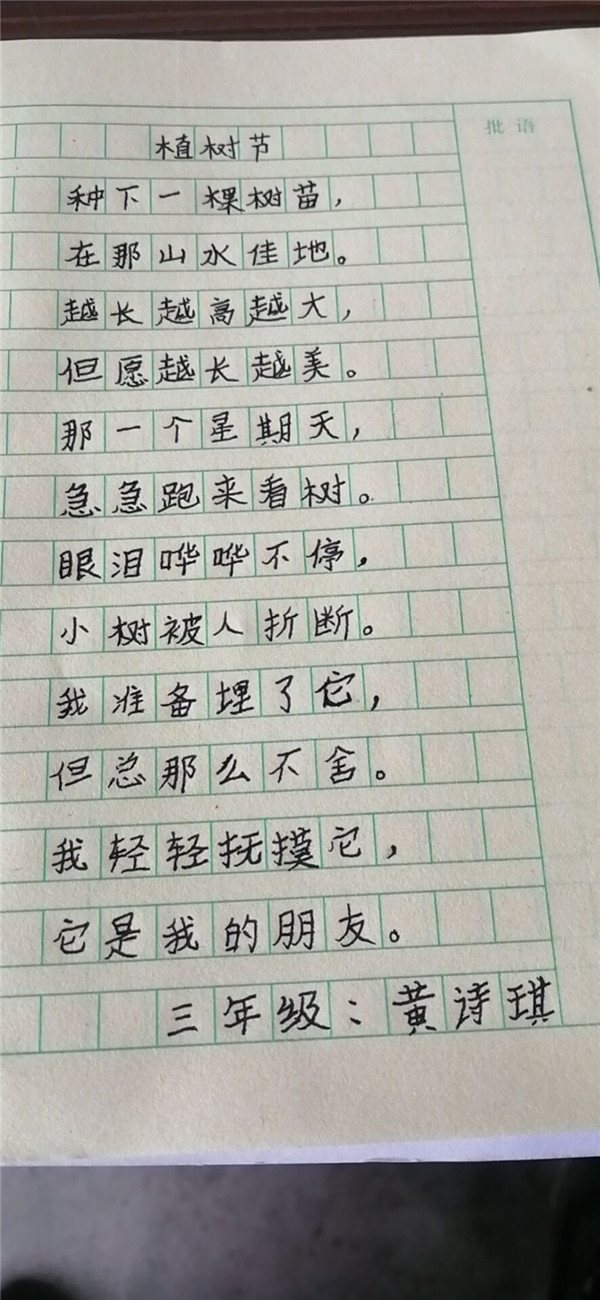 批语
植树节
种下一棵树苗，
在那山水佳地。
越长越高越大，
但愿越长越美。
那一个星期天，
急急跑来看树。
眼泪哗哗不停，
小树被人折断。
我准备埋了它，
但总那么不舍。
我轻轻抚摸它，
它是我的朋友。
三年级：黄诗琪